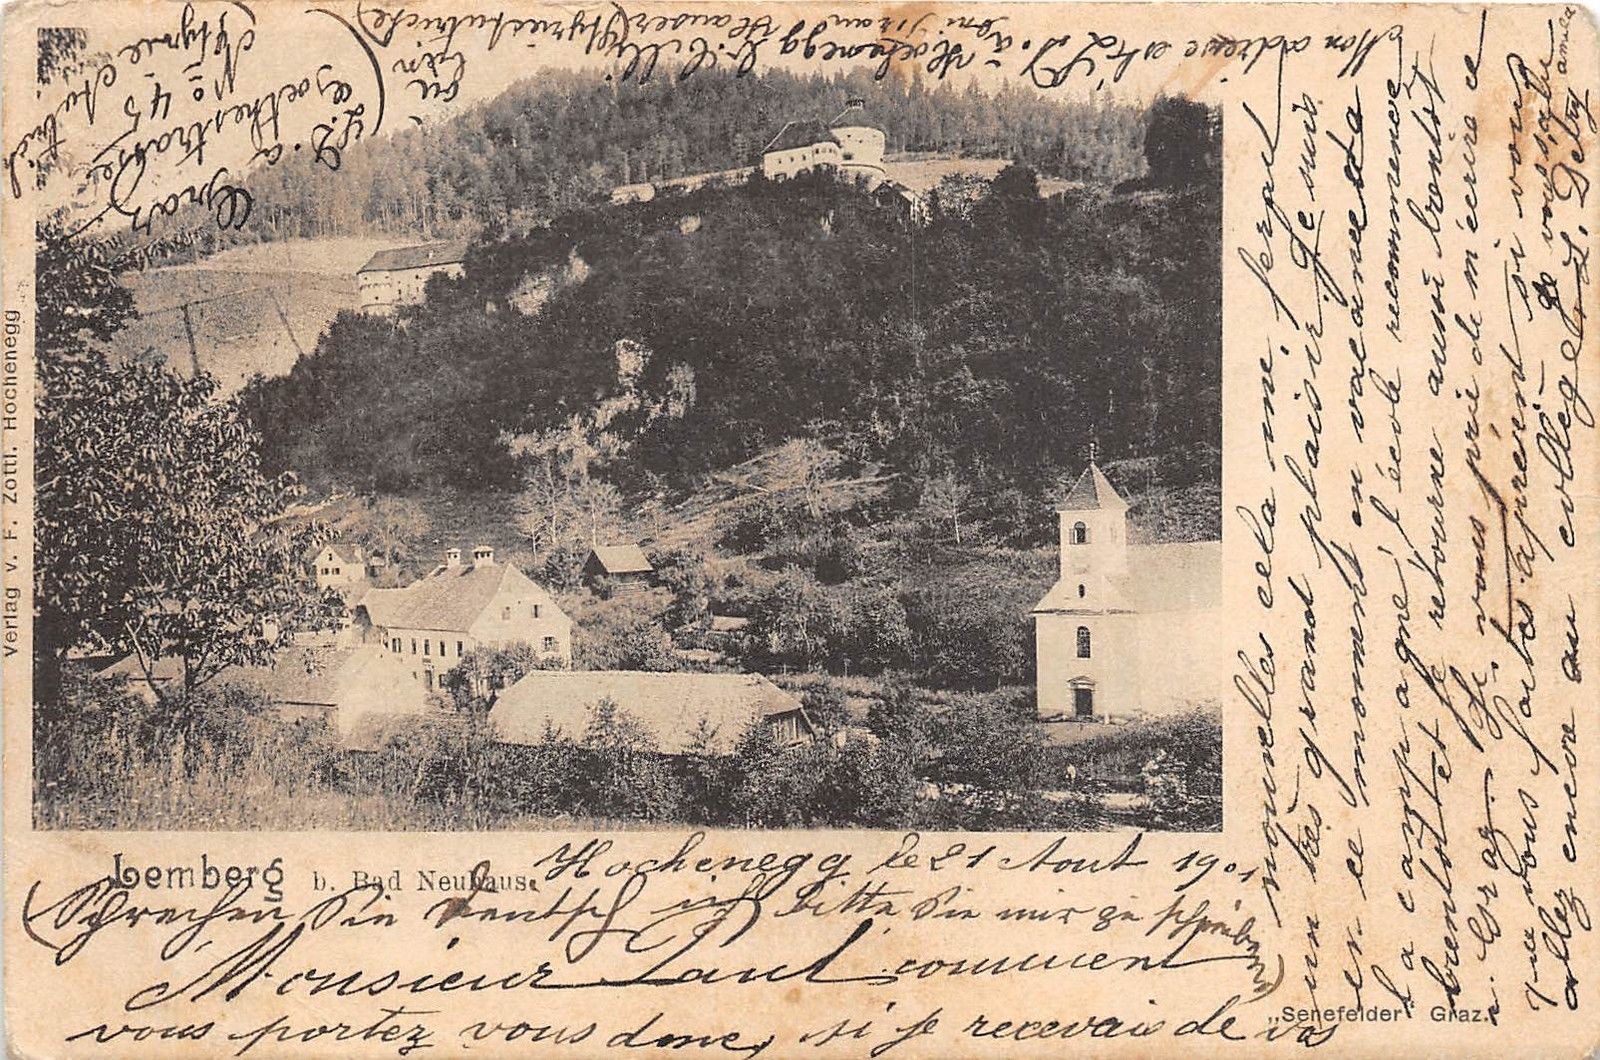 Lemberg b. Bad Neuhaus.
Hochenegg le 21 Aout 1901
(Sprechen Sie deutsch ich bitte Sie mir zu schreiben)
Monsieur Paul comment
vous portez vous donc, si je recevais de vos
nouvelles cela me ferait
un très grand plaisir. Je suis
en ce moment en vacances à
la campagne, l'école recommence
bientôt et je retourne aussi bientôt
à Graz. Je vous prie de m'écrire ce
que vous faites après et si vous
allez encore au collège. Je vous salue
L. Detry
Mon adresse est L. D. à
Hochenegg b. Cilli
(Styrie Autriche)
ou bien
L. D. a
Goethestrasse
No 45
Graz
Styrie Autriche
Verlag v. F. Zottl. Hochenegg
„Senefelder" Graz.